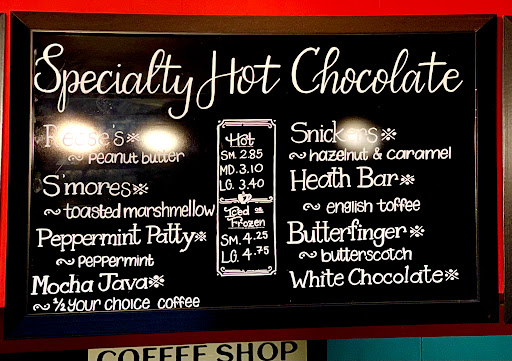 Specialty Hot Chocolate
Reese's
~ peanut butter
S'mores
~ toasted marshmallow
Peppermint Patty
~ peppermint
Mocha Java
~ ½ your choice coffee
Hot
SM. 2.85
MD. 3.10
LG. 3.40
Iced or
Frozen
SM. 4.25
LG. 4.75
Snickers
~ hazelnut & caramel
Heath Bar
~ english toffee
Butterfinger
~ butterscotch
White Chocolate
COFFEE SHOP